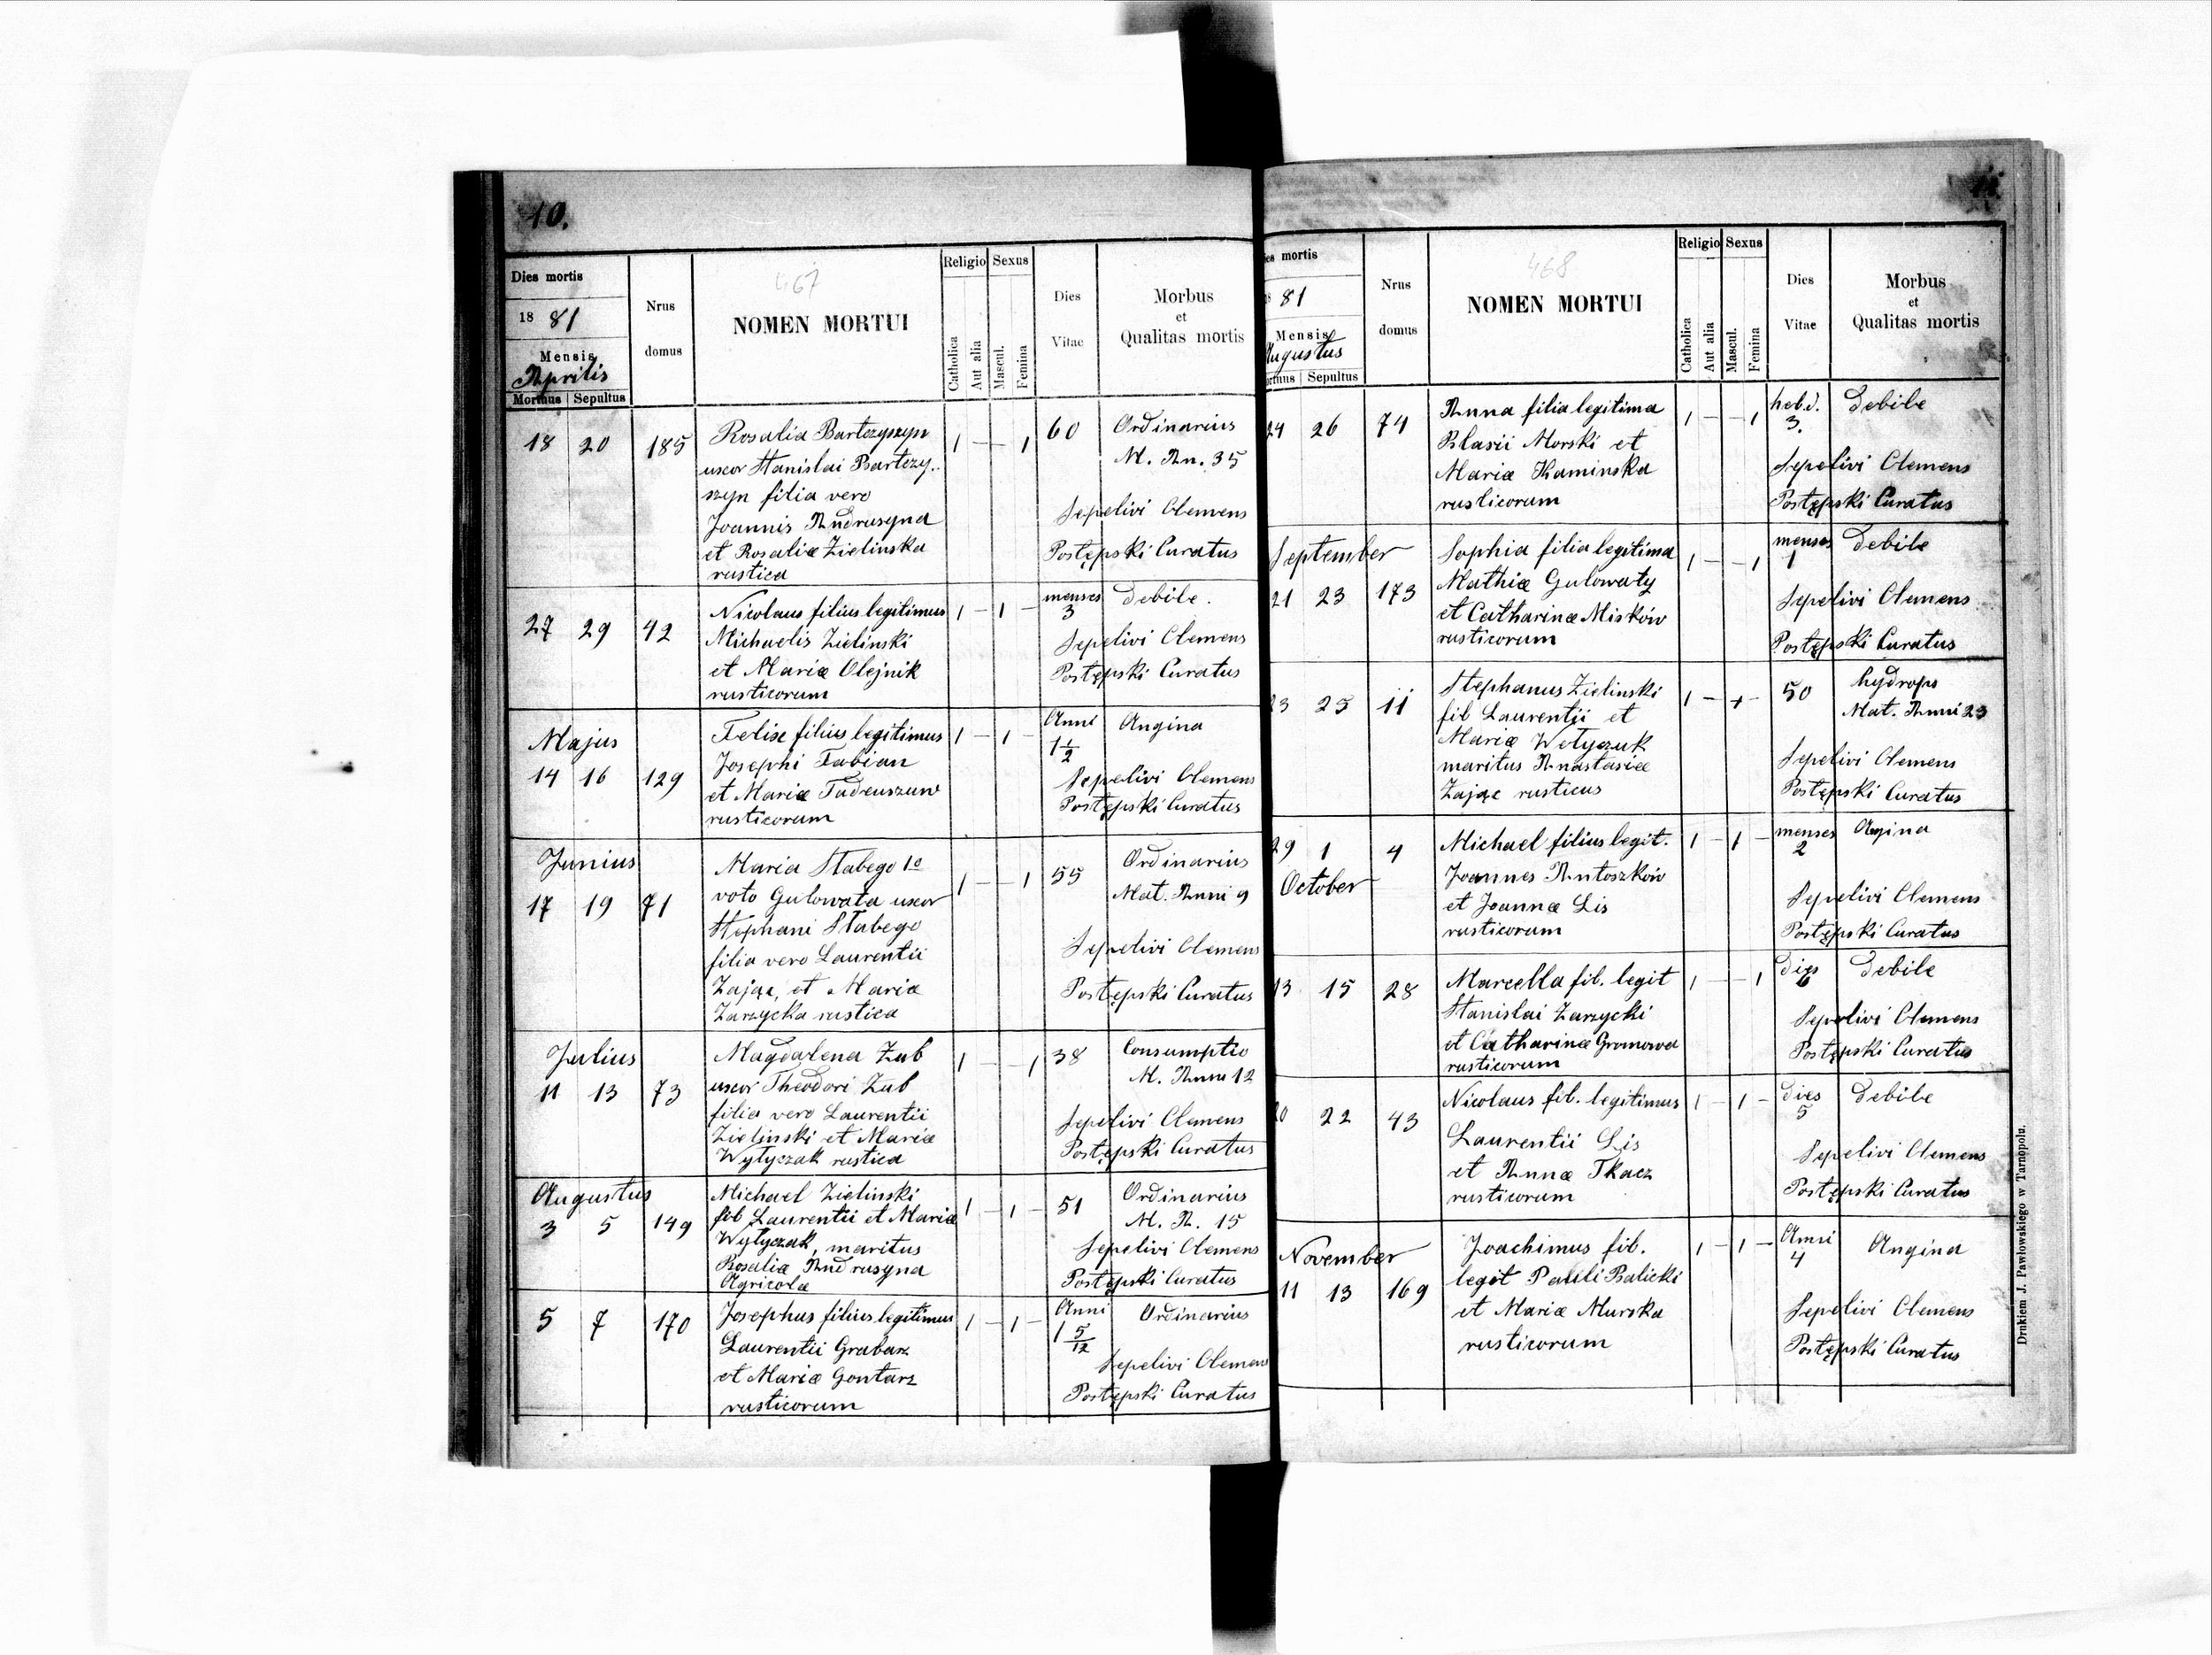 10.
Dies mortis
18 81
Mensis
Aprilis
Mortuus | Sepultus
Nrus
domus
467
NOMEN MORTUI
Religio
Sexus
Catholica
Aut alia
Mascul.
Femina
Dies
Vitae
Morbus
et
Qualitas mortis
18 20 185
Rosalia Bartczyszyn
uxor Stanislai Bartczy-
szyn filia vero
Joannis Andrusyna
et Rosaliæ Zielinska
rustica
1 — 1
60
Ordinarius
M. An. 35
Sepelivi Clemens
Postępski Curatus
27 29 42
Nicolaus filius legitimus
Michaelis Zielinski
et Mariæ Olejnik
rusticorum
1 — 1 —
menses
3
debile.
Sepelivi Clemens
Postępski Curatus
Majus
14 16 129
Felix filius legitimus
Josephi Fabian
et Mariæ Tadeuszuw
rusticorum
1 — 1 —
Anni
1 1/2
Angina
Sepelivi Clemens
Postępski Curatus
Junius
17 19 71
Maria Słabego 1º
voto Gulowata uxor
Stephani Słabego
filia vero Laurentii
Zając, et Mariæ
Zarzycka rustica
1 — 1
55
Ordinarius
Mat. Anni 9
Sepelivi Clemens
Postępski Curatus
Julius
11 13 73
Magdalena Zub
uxor Theodori Zub
filia vero Laurentii
Zielinski et Mariæ
Wytyczak rustica
1 — 1
38
Consumptio
M. Anni 12
Sepelivi Clemens
Postępski Curatus
Augustus
3 5 149
Michael Zielinski
fil Laurentii et Mariæ
Wytyczak, maritus
Rosaliæ Andrusyna
Agricola
1 — 1 —
51
Ordinarius
M. A. 15
Sepelivi Clemens
Postępski Curatus
5 7 170
Josephus filius legitimus
Laurentii Grabarz
et Mariæ Gontarz
rusticorum
1 — 1 —
Anni
1 5/12
Ordinarius
Sepelivi Clemens
Postępski Curatus
11.
mortis
81
Mensis
Augustus
Sepultus
Nrus
domus
468
NOMEN MORTUI
Religio
Sexus
Catholica
Aut alia
Mascul.
Femina
Dies
Vitae
Morbus
et
Qualitas mortis
24 26 74
Anna filia legitima
Blasii Morski et
Mariæ Kaminska
rusticorum
1 — 1
hebd.
3.
debile
Sepelivi Clemens
Postępski Curatus
September
21 23 173
Sophia filia legitima
Mathiæ Gulowaty
et Catharinæ Misków
rusticorum
1 — 1
menses
1
debile
Sepelivi Clemens
Postępski Curatus
23 25 11
Stephanus Zielinski
fil Laurentii et
Mariæ Wetyczuk
maritus Anastasiæ
Zając rusticus
1 — 1 —
50
hydrops
Mat. Anni 23
Sepelivi Clemens
Postępski Curatus
29 1 4
October
Michael filius legit.
Joannes Antoszków
et Joannæ Lis
rusticorum
1 — 1 —
menses
2
Agina
Sepelivi Clemens
Postępski Curatus
13 15 28
Marcella fil. legit
Stanislai Zarzycki
et Catharinæ Gromowa
rusticorum
1 — 1
dies
6
debile
Sepelivi Clemens
Postępski Curatus
20 22 43
Nicolaus fil. legitimus
Laurentii Lis
et Annæ Tkacz
rusticorum
1 — 1 —
dies
5
debile
Sepelivi Clemens
Postępski Curatus
November
11 13 169
Joachimus fil.
legit Pauli Balicki
et Mariæ Murska
rusticorum
1 — 1 —
Anni
4
Angina
Sepelivi Clemens
Postępski Curatus
Drukiem J. Pawłowskiego w Tarnopolu.